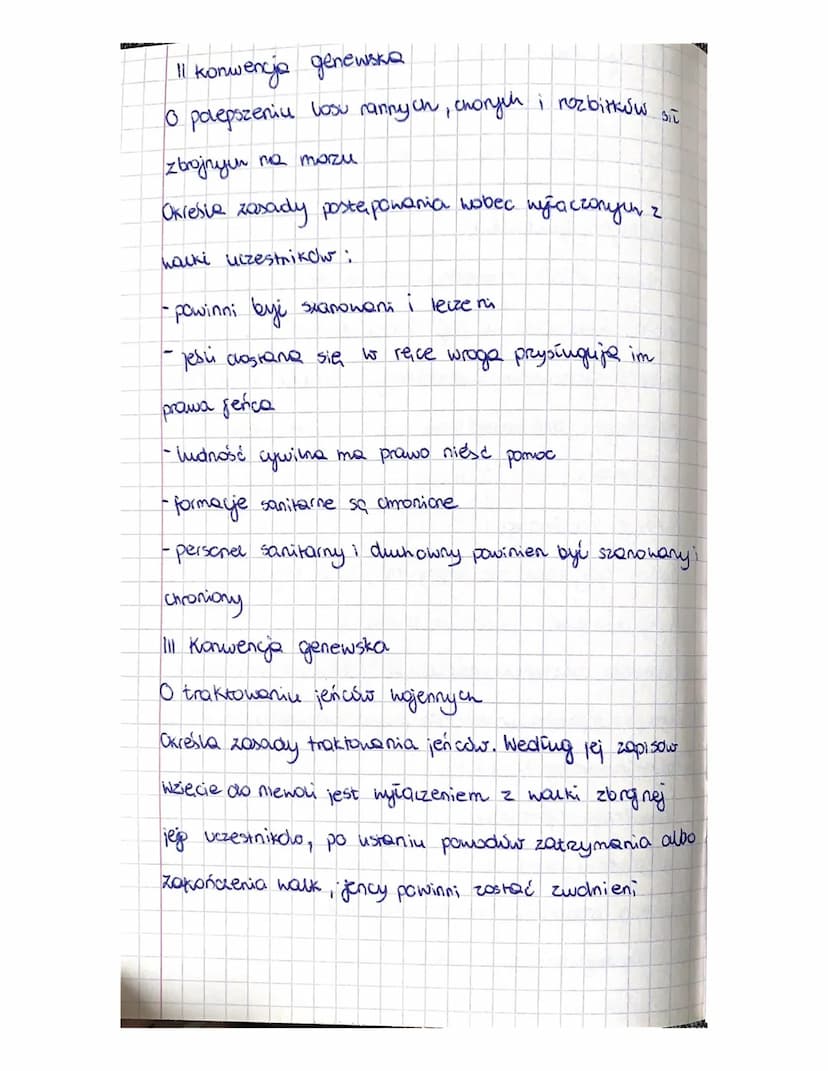 II konwencja genewska
O polepszeniu losu rannych, chorych i rozbitków sił
zbrojnych na morzu
Określa zasady postępowania wobec wyłączonych z
walki uczestników:
- powinni być szanowani i leczeni
- jeśli dostaną się w ręce wroga przysługują im
prawa jeńca
- ludność cywilna ma prawo nieść pomoc
- formacje sanitarne są chronione
- personel sanitarny i duchowny powinien być szanowany i
chroniony
III Konwencja genewska
O traktowaniu jeńców wojennych
Określa zasady traktowania jeńców. Według jej zapisów
wzięcie do niewoli jest wyłączeniem z walki zbrojnej
jej uczestników, po ustaniu powodów zatrzymania albo
zakończenia walk, jency powinni zostać zwolnieni